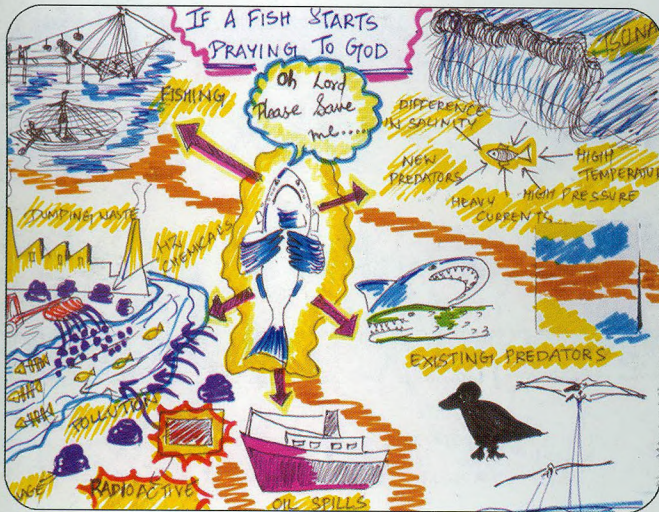 IF A FISH STARTS
PRAYING TO GOD
Oh Lord
Please Save
me....
TSUNA
FISHING
DIFFERENCE
IN SALINITY
NEW
PREDATORS
HIGH
TEMPERATUR
HEAVY
CURRENTS
HIGH PRESSURE
DUMPING WASTE
CHEMICALS
EXISTING PREDATORS
POLLUTION
RADIOACTIVE
OIL SPILLS